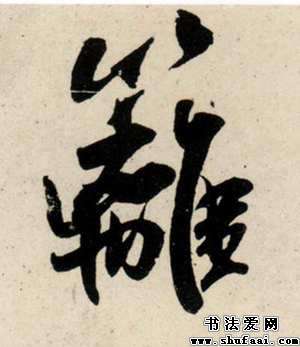 籬
书法爱网
www.shufaai.com